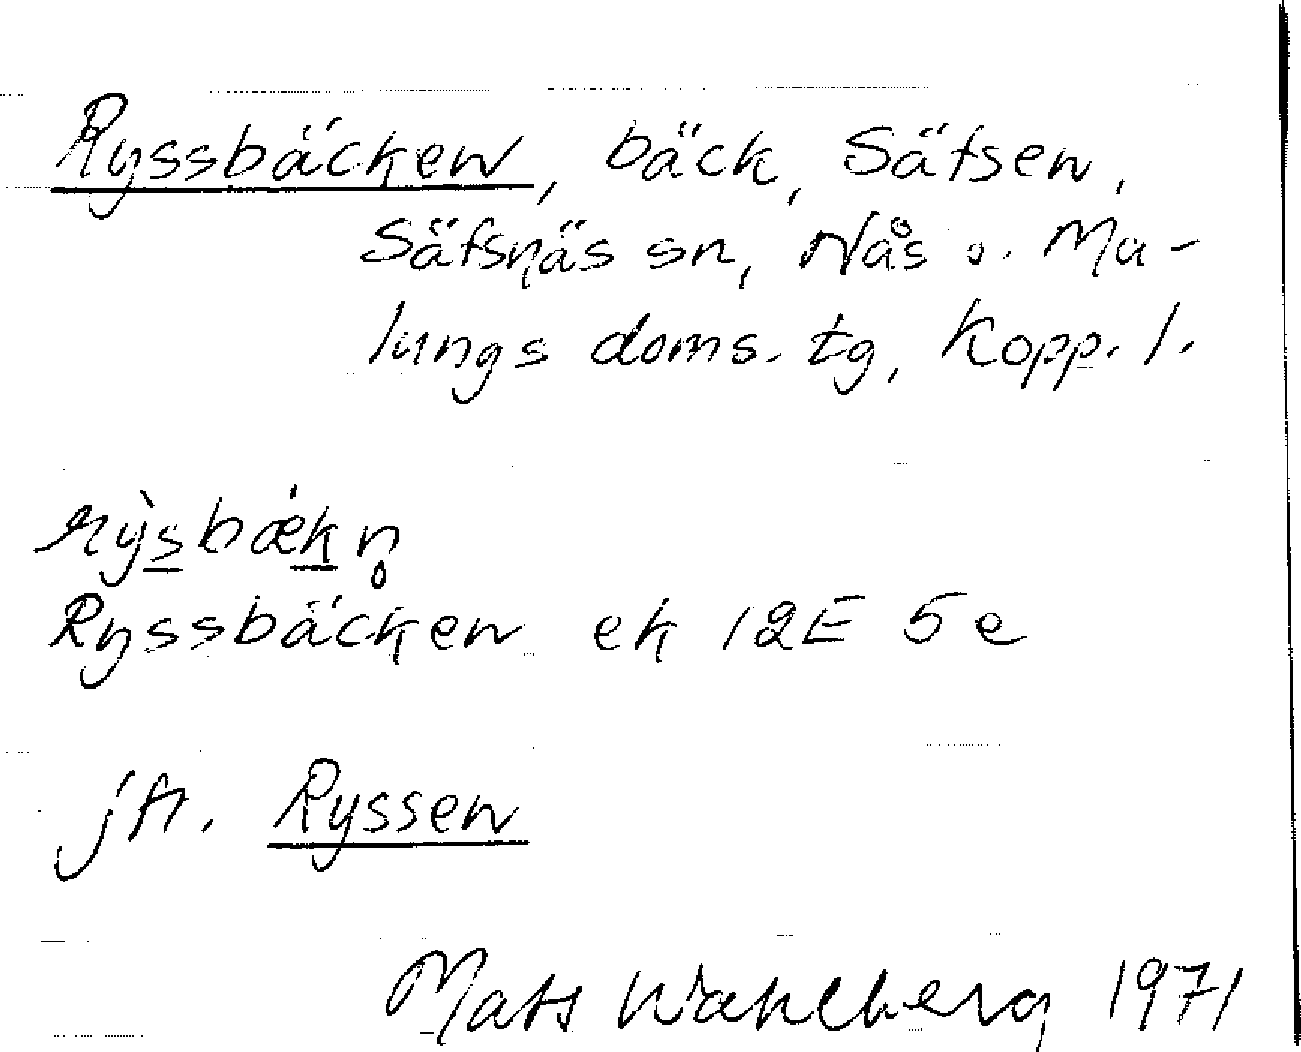 Ryssbäcken, bäck, Säfsen,
Säfsnäs sn, Nås o. Ma-
lungs doms. tg, Kopp. l.
rỳs̲bæ̀k̲n̥
Ryssbäcken ek 12E 5e
jfr. Ryssen
Mats Wahlberg 1971